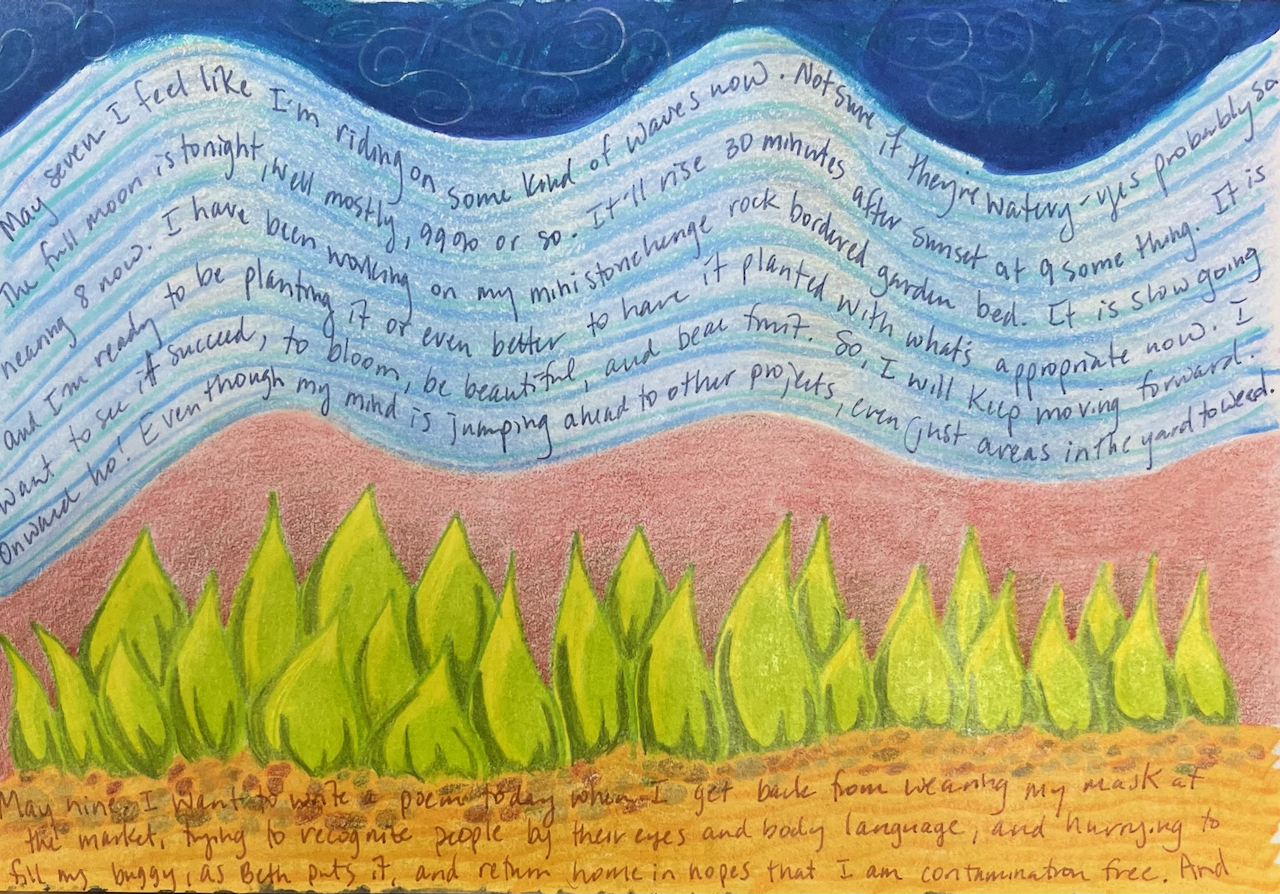 May seven I feel like I'm riding on some kind of waves now. Not sure if they're watery-yes probably so
The full moon is tonight, well mostly, 99% or so. It'll rise 30 minutes after sunset at 9 something. It is
nearing 8 now. I have been working on my mini stonehenge rock bordered garden bed. It is slow going
and I'm ready to be planting it or even better to have it planted with what's appropriate now. I
want to see it succeed, to bloom, be beautiful, and bear fruit. So, I will keep moving forward.
Onward ho! Even though my mind is jumping ahead to other projects, even just areas in the yard to weed.
May nine, I want to write a poem today when I get back from wearing my mask at
the market, trying to recognize people by their eyes and body language, and hurrying to
fill my buggy, as Beth puts it, and return home in hopes that I am contamination free. And